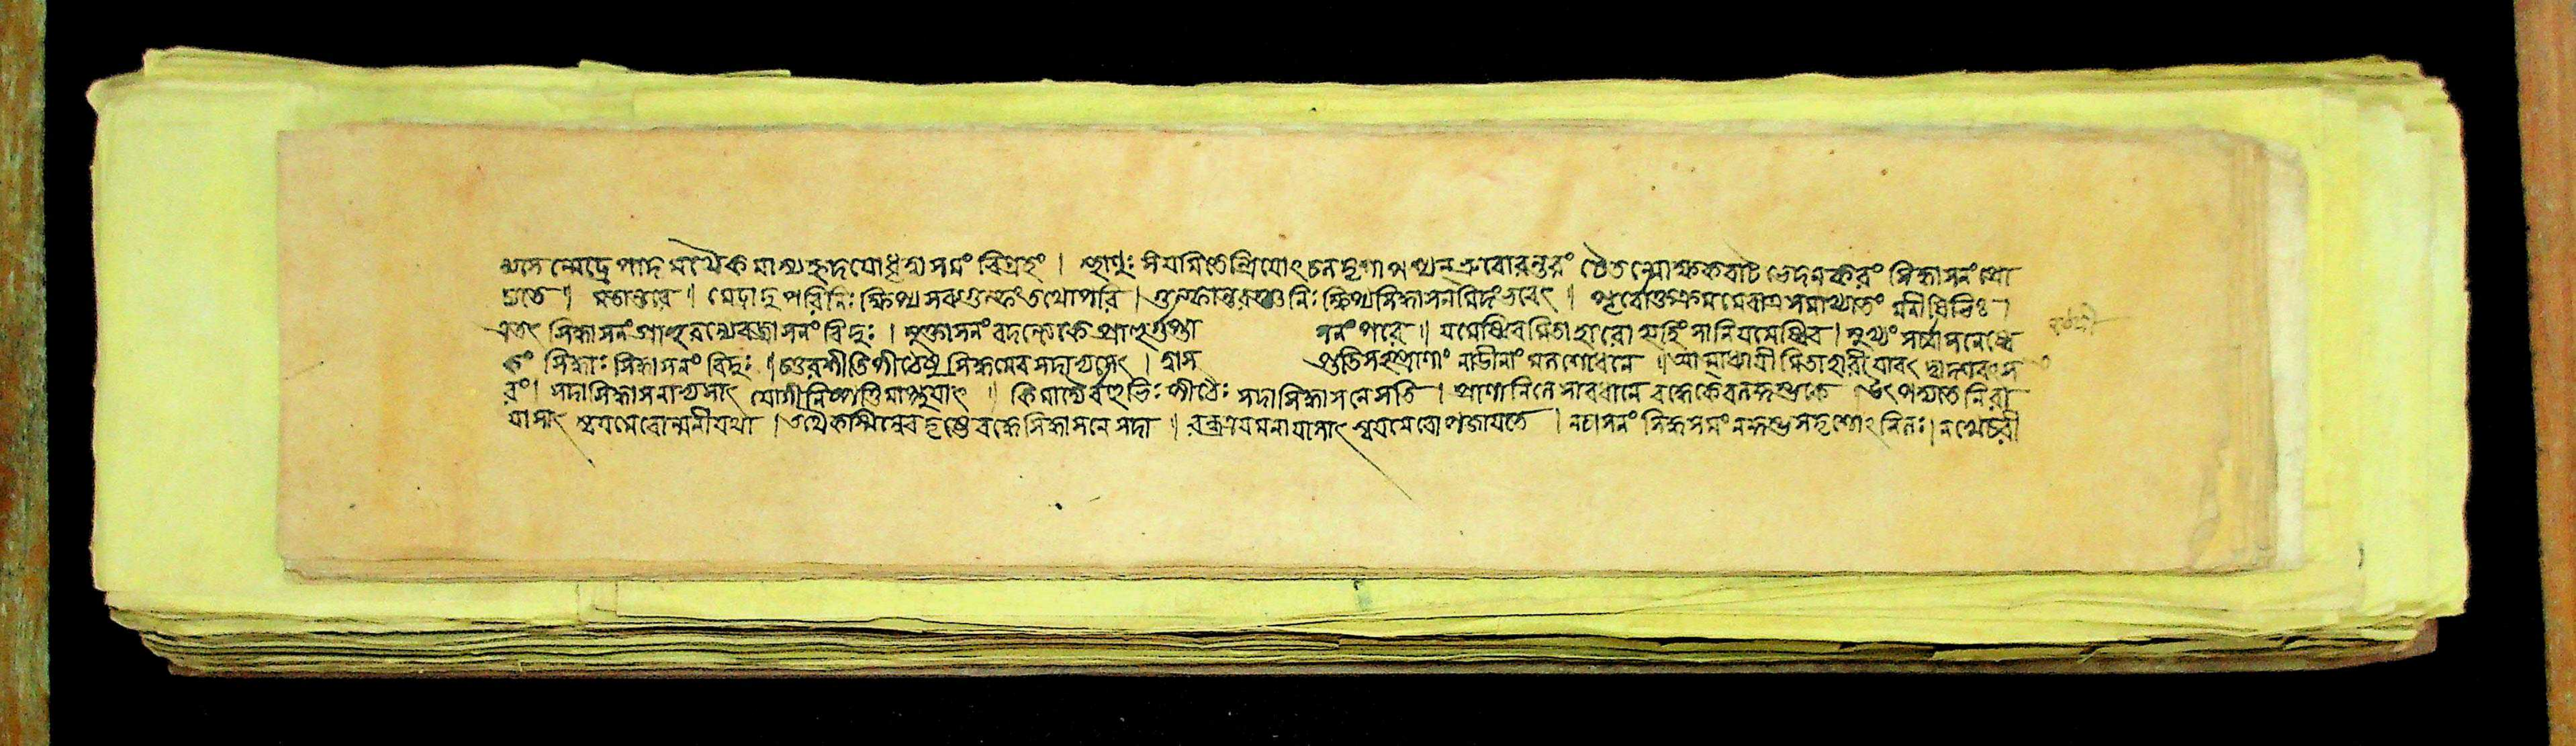 ন্যসেন্মেঢ্রে পাদমথৈকমাস্য হৃদযো ধৃত্বা সমং বিগ্রহং । স্থাণুঃ সংযমিতেন্দ্রিযোঽচলদৃশা পশ্যন্ ভ্রুবোরন্তরং চৈতন্মোক্ষকবাটভেদনকরং সিদ্ধাসনং প্রো
চ্যতে ॥ মতান্তরে ॥ মেঢ্রাদুপরি নিঃক্ষিপ্য সব্যগুল্ফং তথোপরি । গুল্ফান্তরঞ্চ নিঃক্ষিপ্য সিদ্ধাসনমিদং ভবেৎ ॥ মনীষিভিঃ ।
এতৎ সিদ্ধাসনং প্রাহুরন্যে বজ্রাসনং বিদুঃ । মুক্তাসনং বদন্ত্যেকে প্রাহুর্গুপ্তা সনং পরে ॥ যমেষ্বিব মিতাহারো হ্যহিংসা নিযমেষ্বিব । মুখ্যং সর্ব্বাসনেষ্বে
কং সিদ্ধাঃ সিদ্ধাসনং বিদুঃ ॥ চতুরশীতিপীঠেষু সিদ্ধমেব সদাভ্যসেৎ । দ্বাস প্ততিসহস্রাণাং নাডীনাং মলশোধনে ॥ আত্মাধ্যাযী মিতাহারী যাবৎ দ্বাদশবৎস
রং । সদা সিদ্ধাসনাভ্যাসাৎ যোগী নিষ্পত্তিমাপ্নুযাৎ ॥ কিমন্যৈর্বহুভিঃ পীঠৈঃ সদা সিদ্ধাসনে সতি । প্রাণানিলে সাবধানে বদ্ধে কেবলকুম্ভকে । উৎপদ্যতে নিরা
যাসাৎ স্বযমেবোন্মনী যথা । তথৈকস্মিন্নেব দৃঢ়ে বদ্ধে সিদ্ধাসনে সদা ॥ বন্ধত্রযমনাযাসাৎ স্বযমেবোপজাযতে । নাসনং সিদ্ধসমং ন কুম্ভসদৃশোঽনিলঃ । ন খেচরী